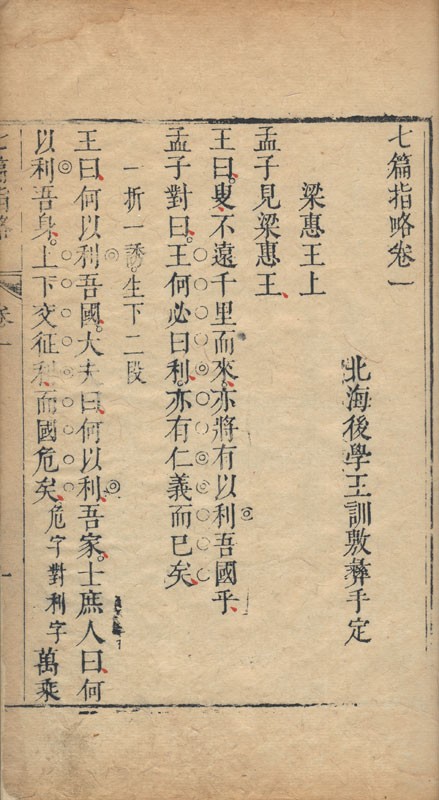 七篇指略卷一
北海後學王訓敷彝手定
梁惠王上
孟子見梁惠王
王曰叟不遠千里而來亦將有以利吾國乎
孟子對曰王何必曰利亦有仁義而已矣
一折一誘生下二段
王曰何以利吾國大夫曰何以利吾家士庶人曰何
以利吾身上下交征利而國危矣危字對利字萬乘
七篇指略
卷一
一